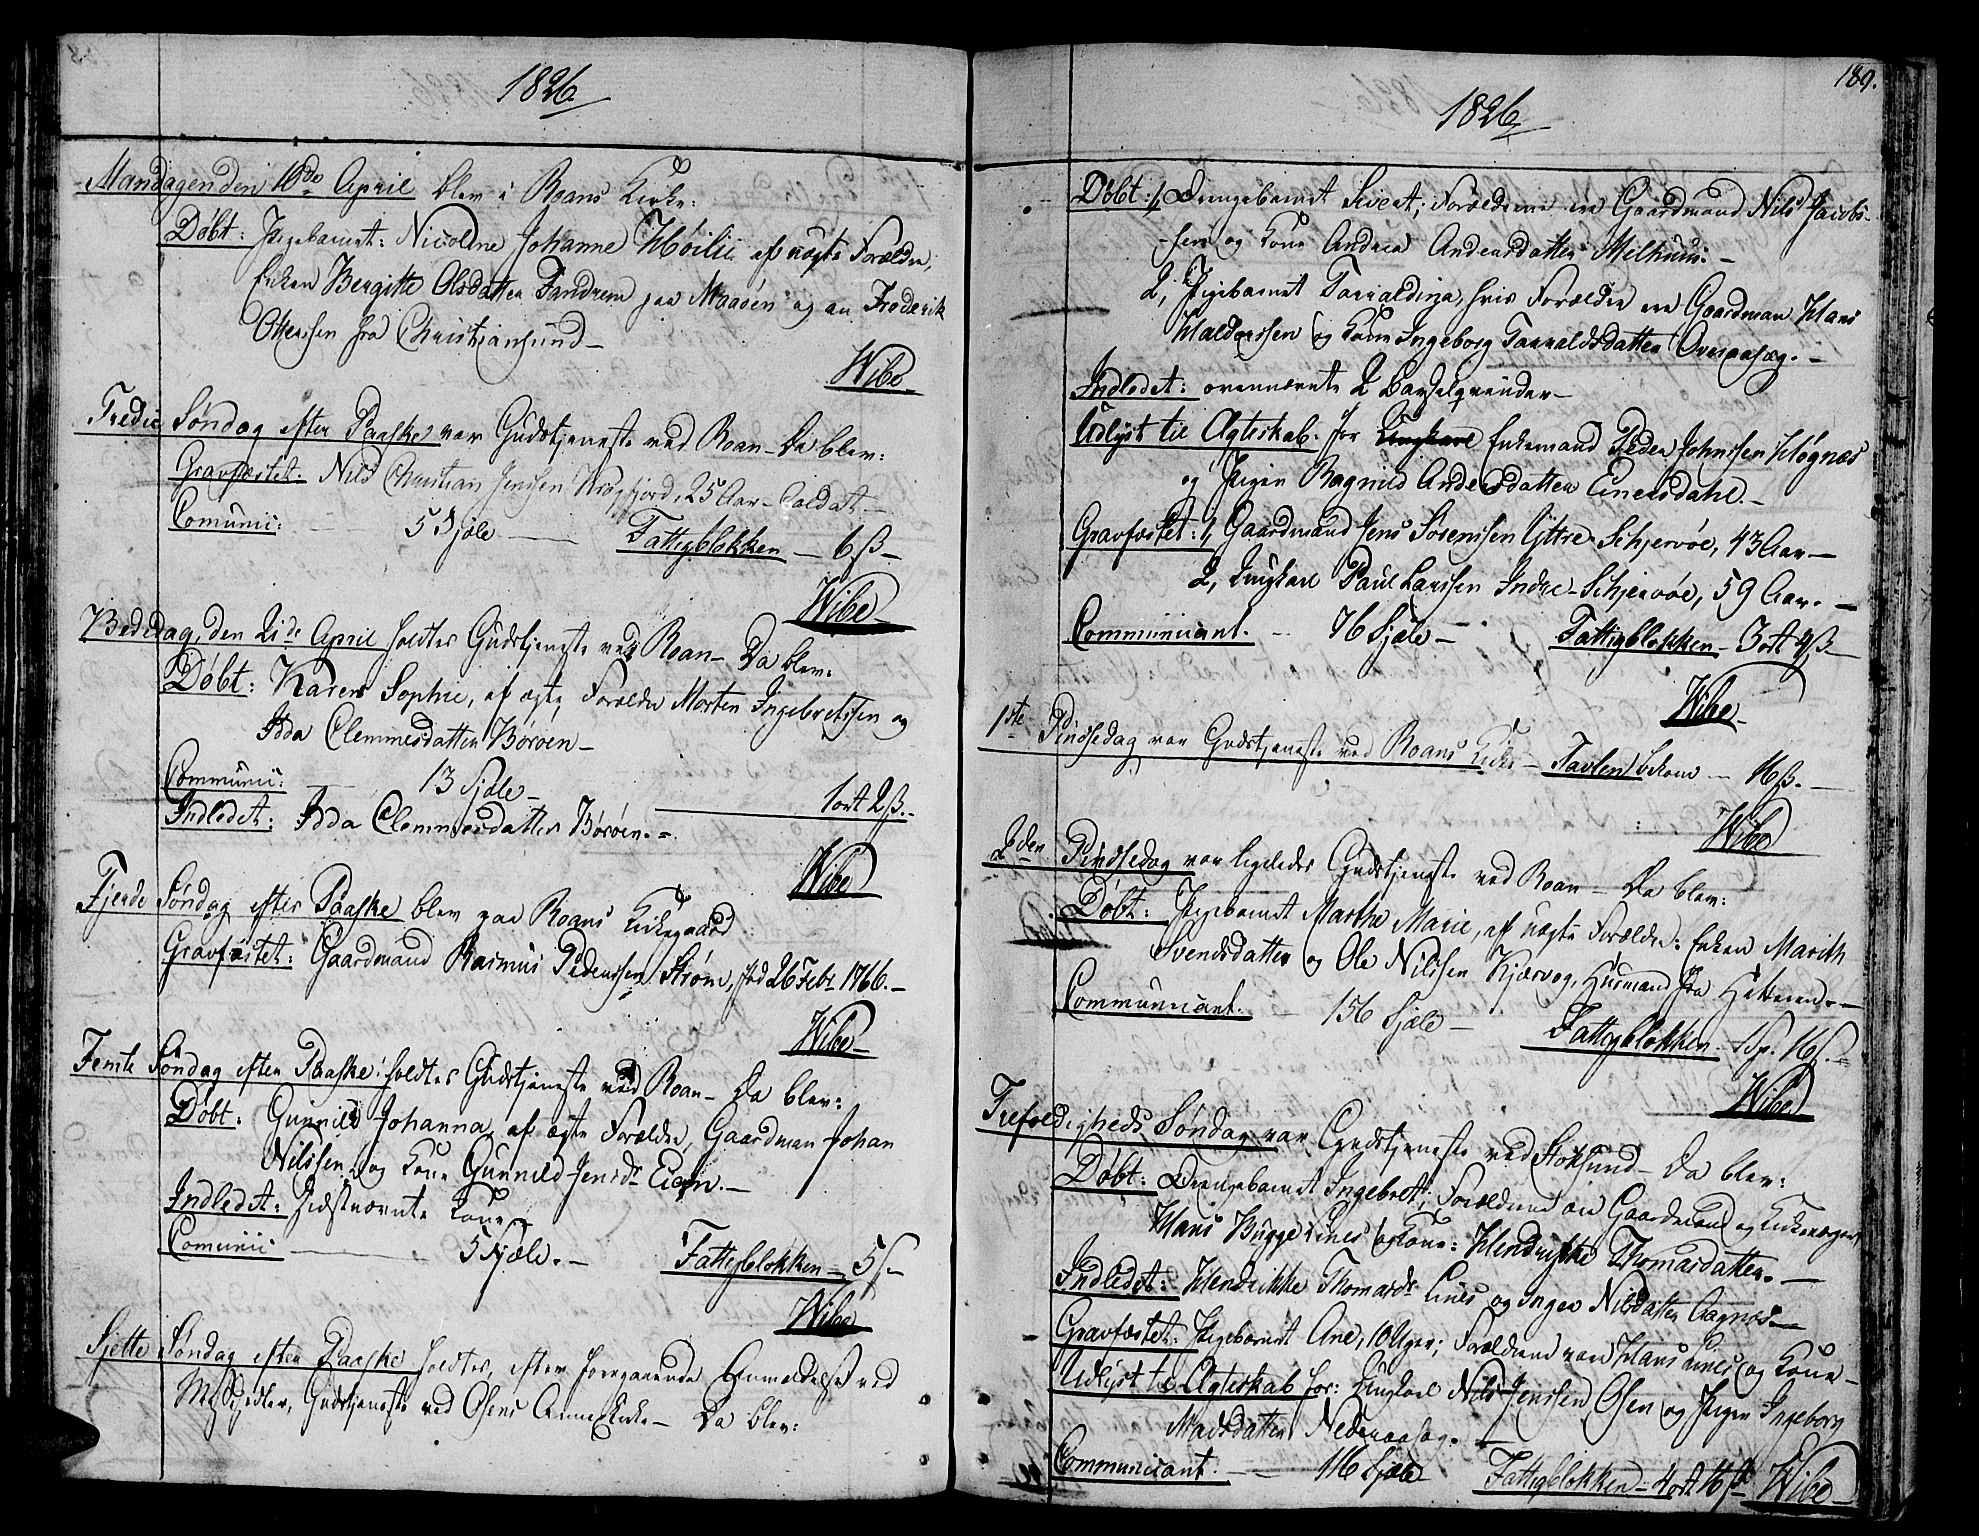 1826
Mandagen den 10de April blev i Roans Kirke:
Døbt: Pigebarnet: Nicoline Johanne Høilie af uægte Forældre,
Enken Bergitte Olsdatter Tandrem paa Maasøen og en Frederik
Ottersen fra Christiansund –
Wibe
Tredie Søndag efter Paaske var Gudstjeneste ved Roan – Da blev:
Gravfæstet: Nils Christian Jenssen Krogfjord, 25 Aar – Soldat –
Comunii: – 5 Sjæle – Fattigblokken – 6 ß –
Wibe –
Bededag, den 21de April holdtes Gudstjeneste ved Roan – Da blev:
Døbt: Karen Sophie, af ægte Forældre Morten Ingebretssen og
Idda Clemmesdatter Børøen –
Communii: – 13 Sjæle – 1 ort 2 ß. –
Indledet: Idda Clemmesdatter Børøen. –
Wibe
Fjerde Søndag efter Paaske blev paa Roans Kirkegaard
Gravfæstet: Gaardmand Rasmus Pederssen Strøm, fød 26 Febr 1766. –
Wibe –
Femte Søndag efter Paaske holdtes Gudstjeneste ved Roan – Da blev:
Døbt: Gunnild Johanna, af ægte Forældre, Gaardman Johan
Nilssen og Kone Gunnild Jensdr Eian. –
Indledet: Sidstnævnte Kone –
Comunii – 5 Sjæle. – Fattigblokken – 5 ß –
Wibe
Sjette Søndag efter Paaske holdtes, efter foregaaende Anmeldelse ved
Gudstjeneste ved Osens Annexkirke – Da blev:
189.
1826
Døbt: 1, Drengebarnet Sivert; Forældrene ere Gaardmand Nils Jacobs-
-sen og Kone Andrea Andersdatter Melhuus. –
2, Pigebarnet Taraldina, hvis Forældre ere Gaardman Hans
Haldorssen og Kone Ingeborg Taraldsdatter Overaasæg. –
Indledet: ovennævnte 2 Barselqvinder –
Udlyst til Ægteskab: for Ungkarl Enkemand Peder Johnssen Høgnæs
og Pigen Ragnild Andersdatter Einersdahl. –
Gravfæstet: 1, Gaardmand Jens Sørenssen Yttre-Schjervøe, 43 Aar –
2, Ungkarl Paul Larssen Indre-Schjervøe, 59 Aar. –
Communicant. – 76 Sjæle – Fattigblokken – 3 ort 4 ß –
Wibe –
1ste Pindsedag var Gudstjeneste ved Roans Kirke – Tavlen bekom – 16 ß. –
Wibe
2den Pindsedag var ligeledes Gudstjeneste ved Roan – Da blev:
Døbt: Pigebarnet Marthe Marie, af uægte Forældre: Enken Marith
Svendsdatter og Ole Nilssen Kjærvog, Huusmand fra Hitteren. –
Communicant. – 156 Sjæle – Fattigblokken – 1 Sp. 16 ß. –
Wibe
Trefoldigheds Søndag var Gudstjeneste ved Stoksund – Da blev:
Døbt: Drengebarnet Ingebret; Forældrene ere Gaardmand og Kirkeværger
Hans Bügge Lines og Kone: Hendrikke Thomasdatter. –
Indledet: Hendrikke Thomasdr Lines og Inger Nilsdatter Aagnæs –
Gravfæstet: Pigebarnet Ane, 10 Uger; Forældrene vare Hans Lines og Kone –
Udlyst til Ægteskab for: Ungkarl Nils Jenssen Osen og Pigen Ingeborg
Madsdatter Nederaasæg. –
Communicant. – 116 Sjæle Fattigblokken – 4 ort 16 ß Wibe –